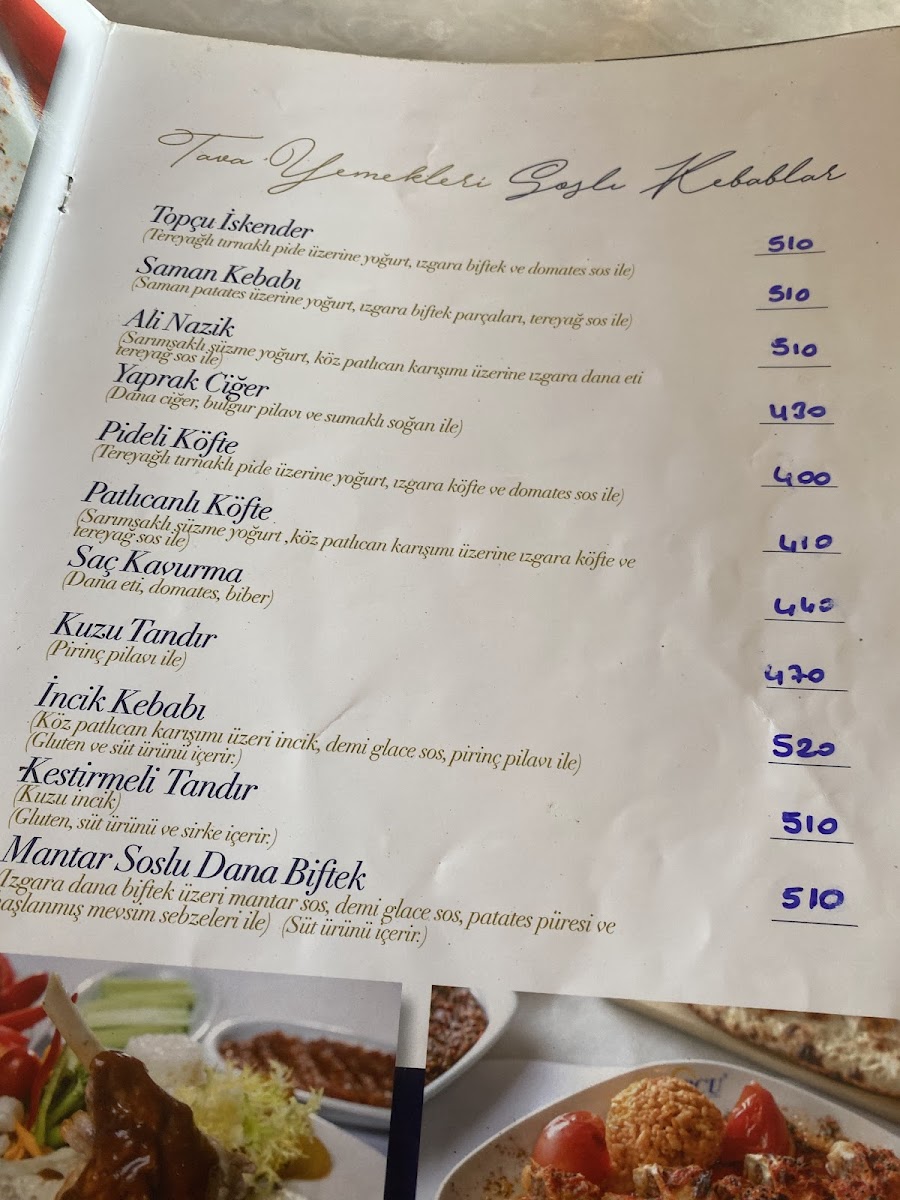 Tava Yemekleri Soslı Kebablar
Topçu İskender
(Tereyağlı tırnaklı pide üzerine yoğurt, ızgara biftek ve domates sos ile)
510
Saman Kebabı
(Saman patates üzerine yoğurt, ızgara biftek parçaları, tereyağ sos ile)
510
Ali Nazik
(Sarımsaklı süzme yoğurt, köz patlıcan karışımı üzerine ızgara dana eti
tereyağ sos ile)
510
Yaprak Ciğer
(Dana ciğer, bulgur pilavı ve sumaklı soğan ile)
430
Pideli Köfte
(Tereyağlı tırnaklı pide üzerine yoğurt, ızgara köfte ve domates sos ile)
400
Patlıcanlı Köfte
(Sarımsaklı süzme yoğurt ,köz patlıcan karışımı üzerine ızgara köfte ve
tereyağ sos ile)
410
Saç Kavurma
(Dana eti, domates, biber)
440
Kuzu Tandır
(Pirinç pilavı ile)
470
İncik Kebabı
(Köz patlıcan karışımı üzeri incik, demi glace sos, pirinç pilavı ile)
(Gluten ve süt ürünü içerir.)
520
Kestirmeli Tandır
(Kuzu incik)
(Gluten, süt ürünü ve sirke içerir.)
510
Mantar Soslu Dana Biftek
(Izgara dana biftek üzeri mantar sos, demi glace sos, patates püresi ve
haşlanmış mevsim sebzeleri ile) (Süt ürünü içerir.)
510